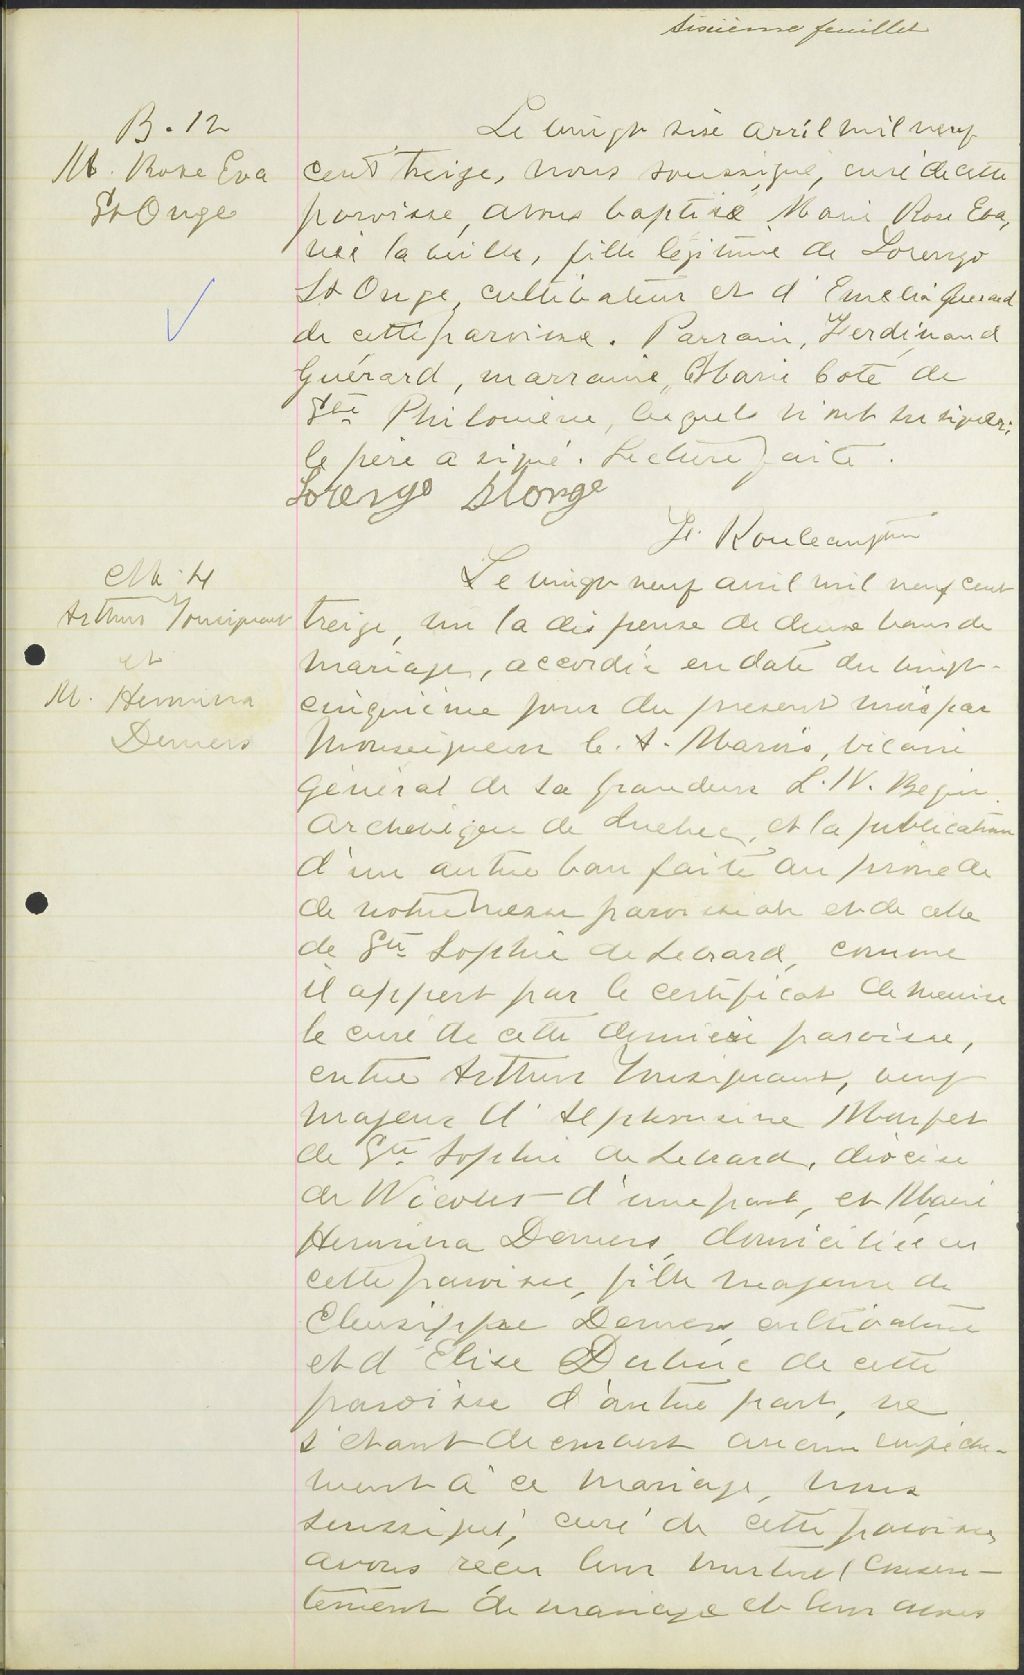 Sixième feuillet
B. 12
M. Rose Eva
St Onge
Le vingt six avril mil neuf
cent treize, nous soussigné, curé de cette
paroisse, avons baptisé Marie Rose Eva,
née la veille, fille légitime de Lorenzo
St Onge, cultivateur et d'Emelia Guerard
de cette paroisse. Parrain, Ferdinand
Guérard, marraine, Marie Coté de
Ste Philomène, lesquels n'ont su signer;
le père a signé. Lecture faite.
Lorenzo St onge
F. Rouleau ptre
M. 4
Arthur
et
M. Hermina
Demers
Le vingt neuf avril mil neuf cent
treize, vu la dispense de deux bans de
mariage, accordée en date du vingt-
cinquième jour du present mois par
Monseigneur C. A. Marois, vicaire
général de Sa Grandeur L. N. Begin
Archevêque de Quebec, et la publication
d'un autre ban faite au prône de
de notre messe paroissiale et de celle
de Ste Sophie de Levrard, comme
il appert par le certificat de
le curé de cette dernière paroisse,
entre Arthur veuf
majeur d'Alphonsine
de Ste Sophie de Levrard, diocèse
de Nicolet d'une part, et Marie
Hermina Demers, domiciliée en
cette paroisse, fille majeure de
Eleusippe Demers, cultivateur
et d'Elise de cette
paroisse d'autre part, ne
s'étant découvert aucun empêche-
ment à ce mariage, nous
soussigné, curé de cette paroisse,
avons reçu leur mutuel consen-
tement de mariage et leur avons